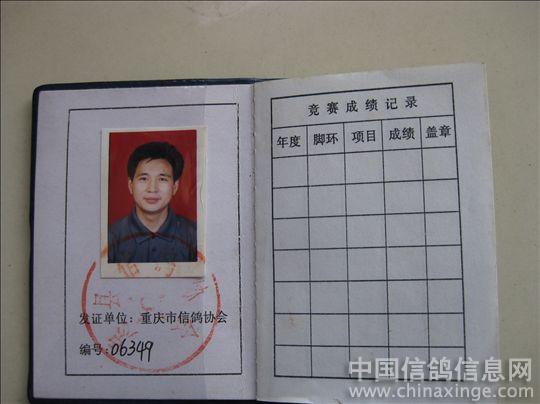 发证单位:重庆市信鸽协会
编号:06349
竞赛成绩记录
年度 脚环 项目 成绩 盖章
中国信鸽信息网
www.chinaxinge.com